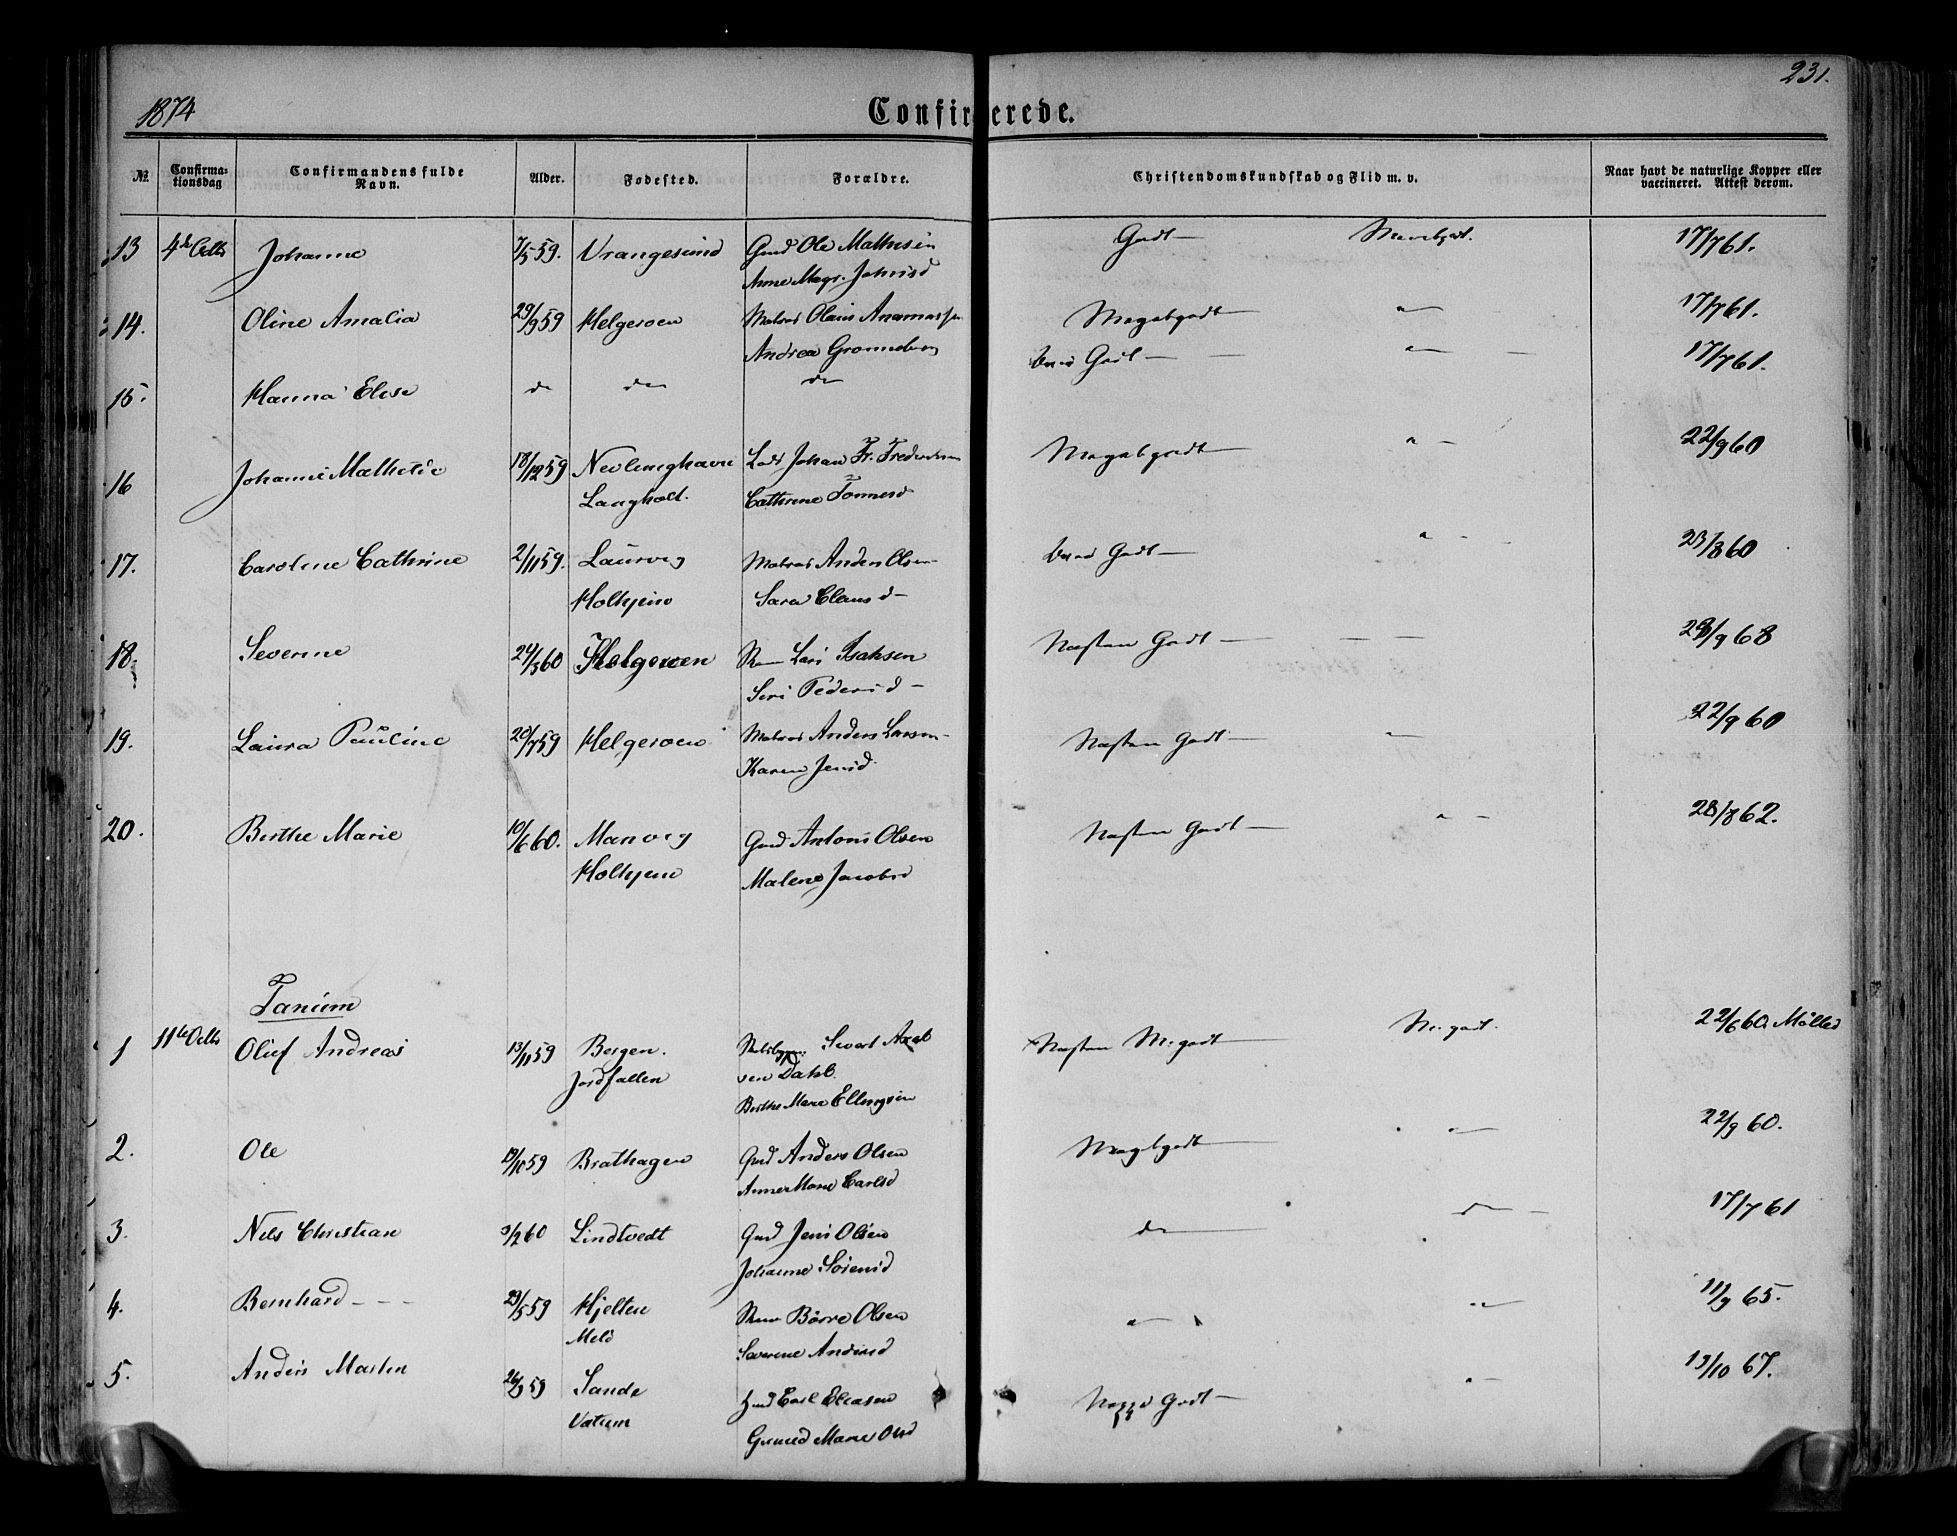 1874
Confirmerede.
231.
№
Confirmationsdag
Confirmandens fulde Navn.
Alder.
Fødested.
Forældre.
Christendomskundskab og Flid m. v.
Naar havt de naturlige Kopper eller vaccineret. Attest derom.
13 4de Octbr Johanne 7/5 59. Vrangesund Gmd Ole Mathisen Godt — 17/7 61.
Anne Jahnsd
14. Oline Amalia 29/9 59 Helgeroen Matros Olaus Megetgodt — " — 17/7 61.
Andrea
15. Hanna Elise do do do Godt — " — 17/7 61.
16 Johanne Mathilde 18/12 59 Nevlunghavn Lods Johan Fr. Megetgodt — " — 22/9 60
Laaghold. Cathrine
17. Caroline Cathrine 2/11 59. Laurvig Matros Anders Olsen Godt — " - 23/8 60
Holhjem Sara Clausd
18. Severine 24/3 60 Helgeroen Lars Isaksen Næsten Godt — — — 9 68
Siri Pedersd
19. Laura Pauline 20/7 59 Helgeroen Matros Anders Larsen Næsten Godt — " — 22/9 60
Karen Jensd
20. Berthe Marie 10/6 60. Manvig Gmd Antoni Olsen Næsten Godt — " - 28/8 62.
Holhjem Malene Jacobsd
Tanum
1 11te Octbr Oluf Andreas 13/11 59 Bergen. Sivert Axel Næsten M. godt — M. godt. 22/6 60 Møller
Jordfallen von Dahl.
Berthe Marie Ellingsen
2. Ole 19/10 59 Brathagen Gmd Anders Olsen Megetgodt — " — 22/9 60.
Anne Marie Carlsd
3. Nils Christian 3/2 60 Lindtvedt Gmd Jens Olsen do — do — 17/7 61
Johanne Sörensd
4. Bernhard - - - 23/5 59 Hjelten Börre Olsen " — " — 11/9 65.
Melö Severine Andersd
5. Anders Martin 59 Sande Carl Eliasen Godt — " — 19/10 67.
Vatum Marie Olsd